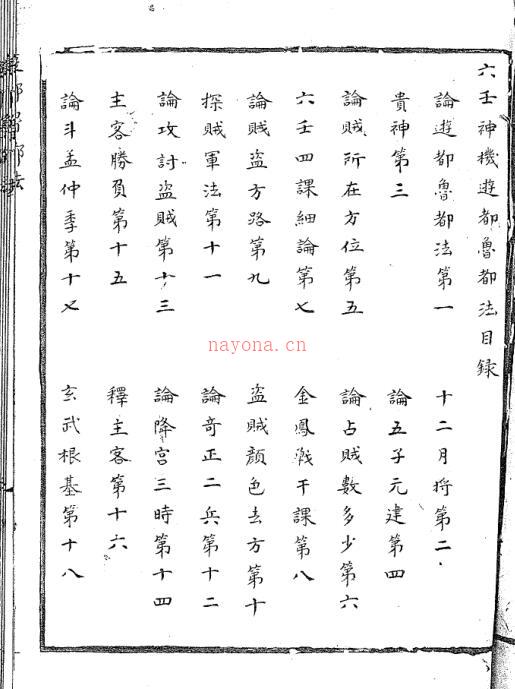 六壬神機遊都魯都法目録
論遊都魯都法第一 十二月將第二
貴神第三 論五子元建第四
論賊所在方位第五 論占賊數多少第六
六壬四課細論第七 金鳳戰干課第八
論賊盜方路第九 盜賊顔色去方第十
探賊軍法第十一 論奇正二兵第十二
論攻討盜賊第十三 論降宫三時第十四
主客勝負第十五 釋主客第十六
論斗孟仲季第十七 玄武根基第十八
nayona.cn